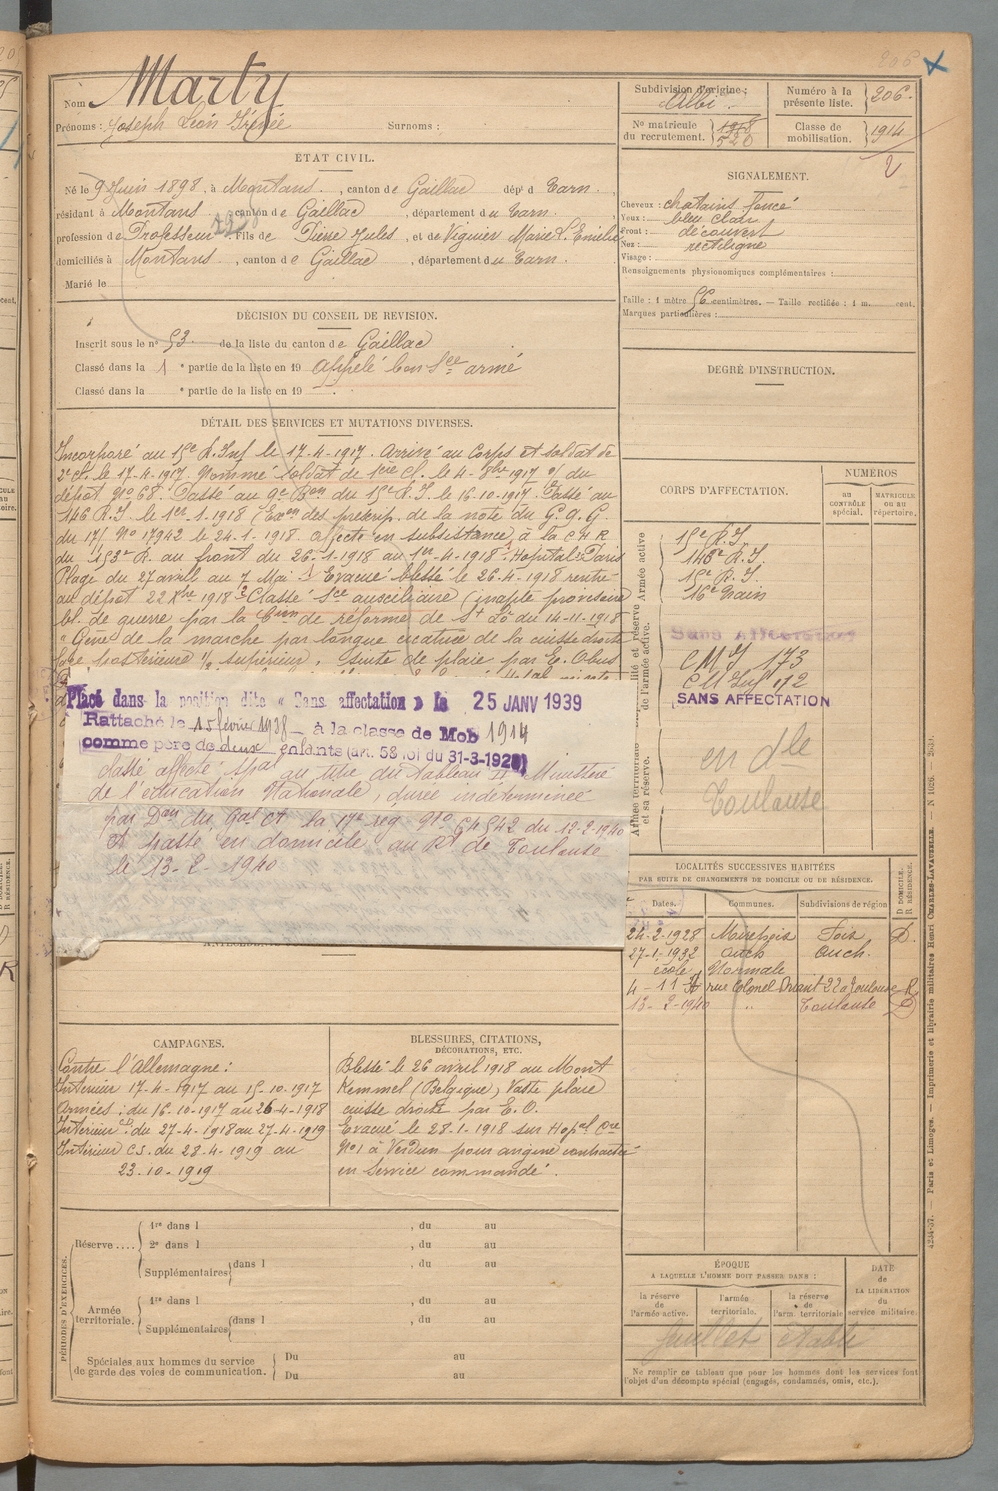 Nom Marty
Prénoms : Joseph Léon Irénée Surnoms :
Subdivision d'origine : Albi.
Numéro à la présente liste. 206.
No matricule du recrutement. 1918 520
Classe de mobilisation. 1914
206
ÉTAT CIVIL.
Né le 9 Juin 1898, à Montans, canton de Gaillac dépt d Tarn.
résidant à Montans, canton de Gaillac, département du Tarn.
profession de Professeur Fils de Pierre Jules, et de Viguier Marie L. Emilie
domiciliés à Montans, canton de Gaillac, département du Tarn.
Marié le
SIGNALEMENT.
Cheveux : chatains foncé
Yeux : bleu clair
Front : découvert
Nez : rectiligne
Visage :
Renseignements physionomiques complémentaires :
Taille : 1 mètre 56 centimètres. — Taille rectifiée : 1 m. cent.
Marques particulières :
DÉCISION DU CONSEIL DE REVISION.
Inscrit sous le no 53 de la liste du canton de Gaillac
Classé dans la 1 e partie de la liste en 19 Appelé bon Sce armé
Classé dans la e partie de la liste en 19
DEGRÉ D'INSTRUCTION.
DÉTAIL DES SERVICES ET MUTATIONS DIVERSES.
Incorporé au 15e R. Inf le 17-4-1917. Arrivé au Corps et soldat de
2e Cl. le 17-4-1917. Nommé soldat de 1ère Cl. le 4-8bre 1917 du
dépôt No 68. Passé au 9e Bon du 15e R.I. le 16.10-1917. Passé au
146 R.I. le 1er-1-1918 (Exon des prescrip. de la note du G.Q.G.
du 17/ No 17942 le 24-1-1918. affecté en subsistance à la C.H.R.
du 153e R. au front du 26-1-1918 au 1er-4-1918. Hopital Paris
Plage du 27 avril au 7 Mai. Evacué blessé le 26-4-1918 rentré
au dépôt 22 Xbre 1918 Classé Sce auxiliaire (inapte provisoire
bl. de guerre par la Com de réforme de St Lô du 14-11-1918
" Gêne de la marche par longue cicatrice de la cuisse droite
face postérieure 1/3 supérieur, suite de plaie par E. Obus
Placé dans la position dite « Sans affectation » le 25 JANV 1939
Rattaché le 15 février 1938 à la classe de Mob 1914
comme père de deux enfants (art. 58 loi du 31-3-1928)
Classé affecté Spal au titre du tableau II Ministère
de l'éducation Nationale, durée indéterminée
par Don du Gal Ct la 17e reg No 64542 du 12-2-1940
Et passé en domicile au Rt de Toulouse
le 13-2-1940
CORPS D'AFFECTATION.
NUMÉROS
AU CONTRÔLE spécial.
MATRICULE OU AU répertoire.
Armée active
15e R.I.
146e R.I.
15e R.I.
16e Train
et réserve de l'armée active.
Sans Affectation
CMI 173
CM Inf 172
SANS AFFECTATION
Armée territoriale et sa réserve.
en dle
Toulouse
LOCALITÉS SUCCESSIVES HABITÉES
PAR SUITE DE CHANGEMENTS DE DOMICILE OU DE RÉSIDENCE.
Dates. Communes. Subdivisions de région D DOMICILE. R RÉSIDENCE.
24-2-1928 Mirepoix Foix D.
27-1-1932 Auch Auch.
école Normale
4-11 rue Colonel Driant 22 à Toulouse R
13-2-1940 " Toulouse D
CAMPAGNES.
Contre l'Allemagne :
Intérieur 17-4-1917 au 15-10-1917
Armées : du 16-10-1917 au 26-4-1918
Intérieur : du 27-4-1918 au 27-4-1919
Intérieur C.S. du 28-4-1919 au
23-10-1919
BLESSURES, CITATIONS,
DÉCORATIONS, ETC.
Blessé le 26 avril 1918 au Mont
Kemmel (Belgique) Vaste plaie
cuisse droite par E. O.
Evacué le 28-1-1918 sur Hopal Ore
No 1 à Verdun pour angine contractée
en service commandé.
PÉRIODES D'EXERCICES.
Réserve ....
1re dans l , du au
2e dans l , du au
Supplémentaires dans l , du au
Armée territoriale.
1re dans l , du au
Supplémentaires dans l , du au
Spéciales aux hommes du service
de garde des voies de communication.
Du au
Du au
ÉPOQUE
A LAQUELLE L'HOMME DOIT PASSER DANS :
la réserve de l'armée active.
l'armée territoriale.
la réserve de l'arm. territoriale
DATE de LA LIBÉRATION du service militaire.
feuillet établi
Ne remplir ce tableau que pour les hommes dont les services font
l'objet d'un décompte spécial (engagés, condamnés, omis, etc.).
4234-37. — Paris et Limoges. — Imprimerie et librairie militaires Henri CHARLES-LAVAUZELLE. — N 1026. — 2639.